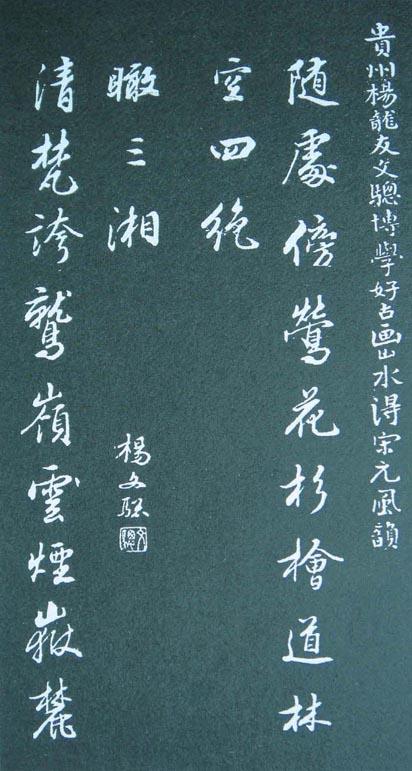 貴州楊龍友文驄博學好古画山水得宋元風韻
随處傍鶯花杉檜道林
空四絶
清梵誇鷲嶺雲煙嶽麓
瞰三湘
楊文驄
文驄